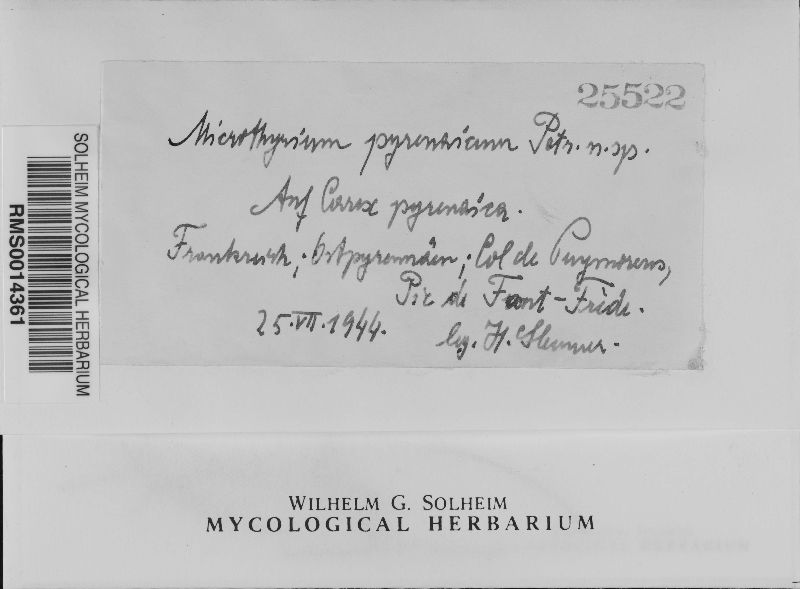 25522
Microthyrium pyrenaicum Petr. n. sp.
Auf Carex pyrenaica.
Frankreich; Ostpyrenäen; Col de Puymorens,
Pic de Font-Frède.
25.VII.1944. leg. H.
SOLHEIM MYCOLOGICAL HERBARIUM
RMS0014361
WILHELM G. SOLHEIM
MYCOLOGICAL HERBARIUM